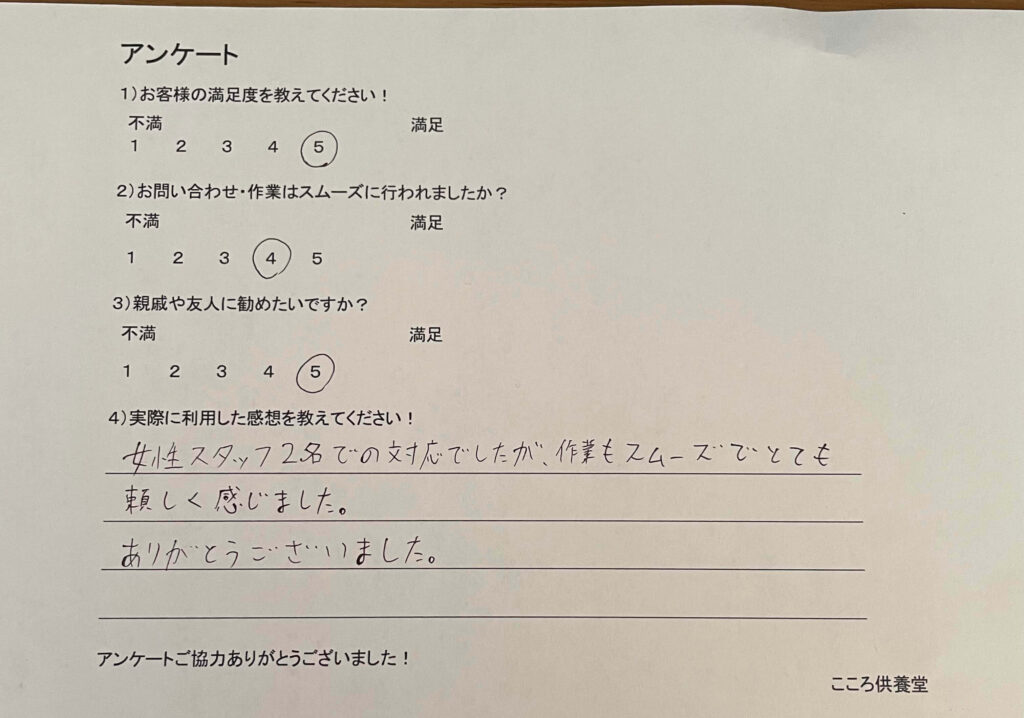 アンケート
1)お客様の満足度を教えてください！
不満 満足
1 2 3 4 5
2)お問い合わせ・作業はスムーズに行われましたか？
不満 満足
1 2 3 4 5
3)親戚や友人に勧めたいですか？
不満 満足
1 2 3 4 5
4)実際に利用した感想を教えてください！
女性スタッフ2名での対応でしたが、作業もスムーズでとても
頼しく感じました。
ありがとうございました。
アンケートご協力ありがとうございました！
こころ供養堂